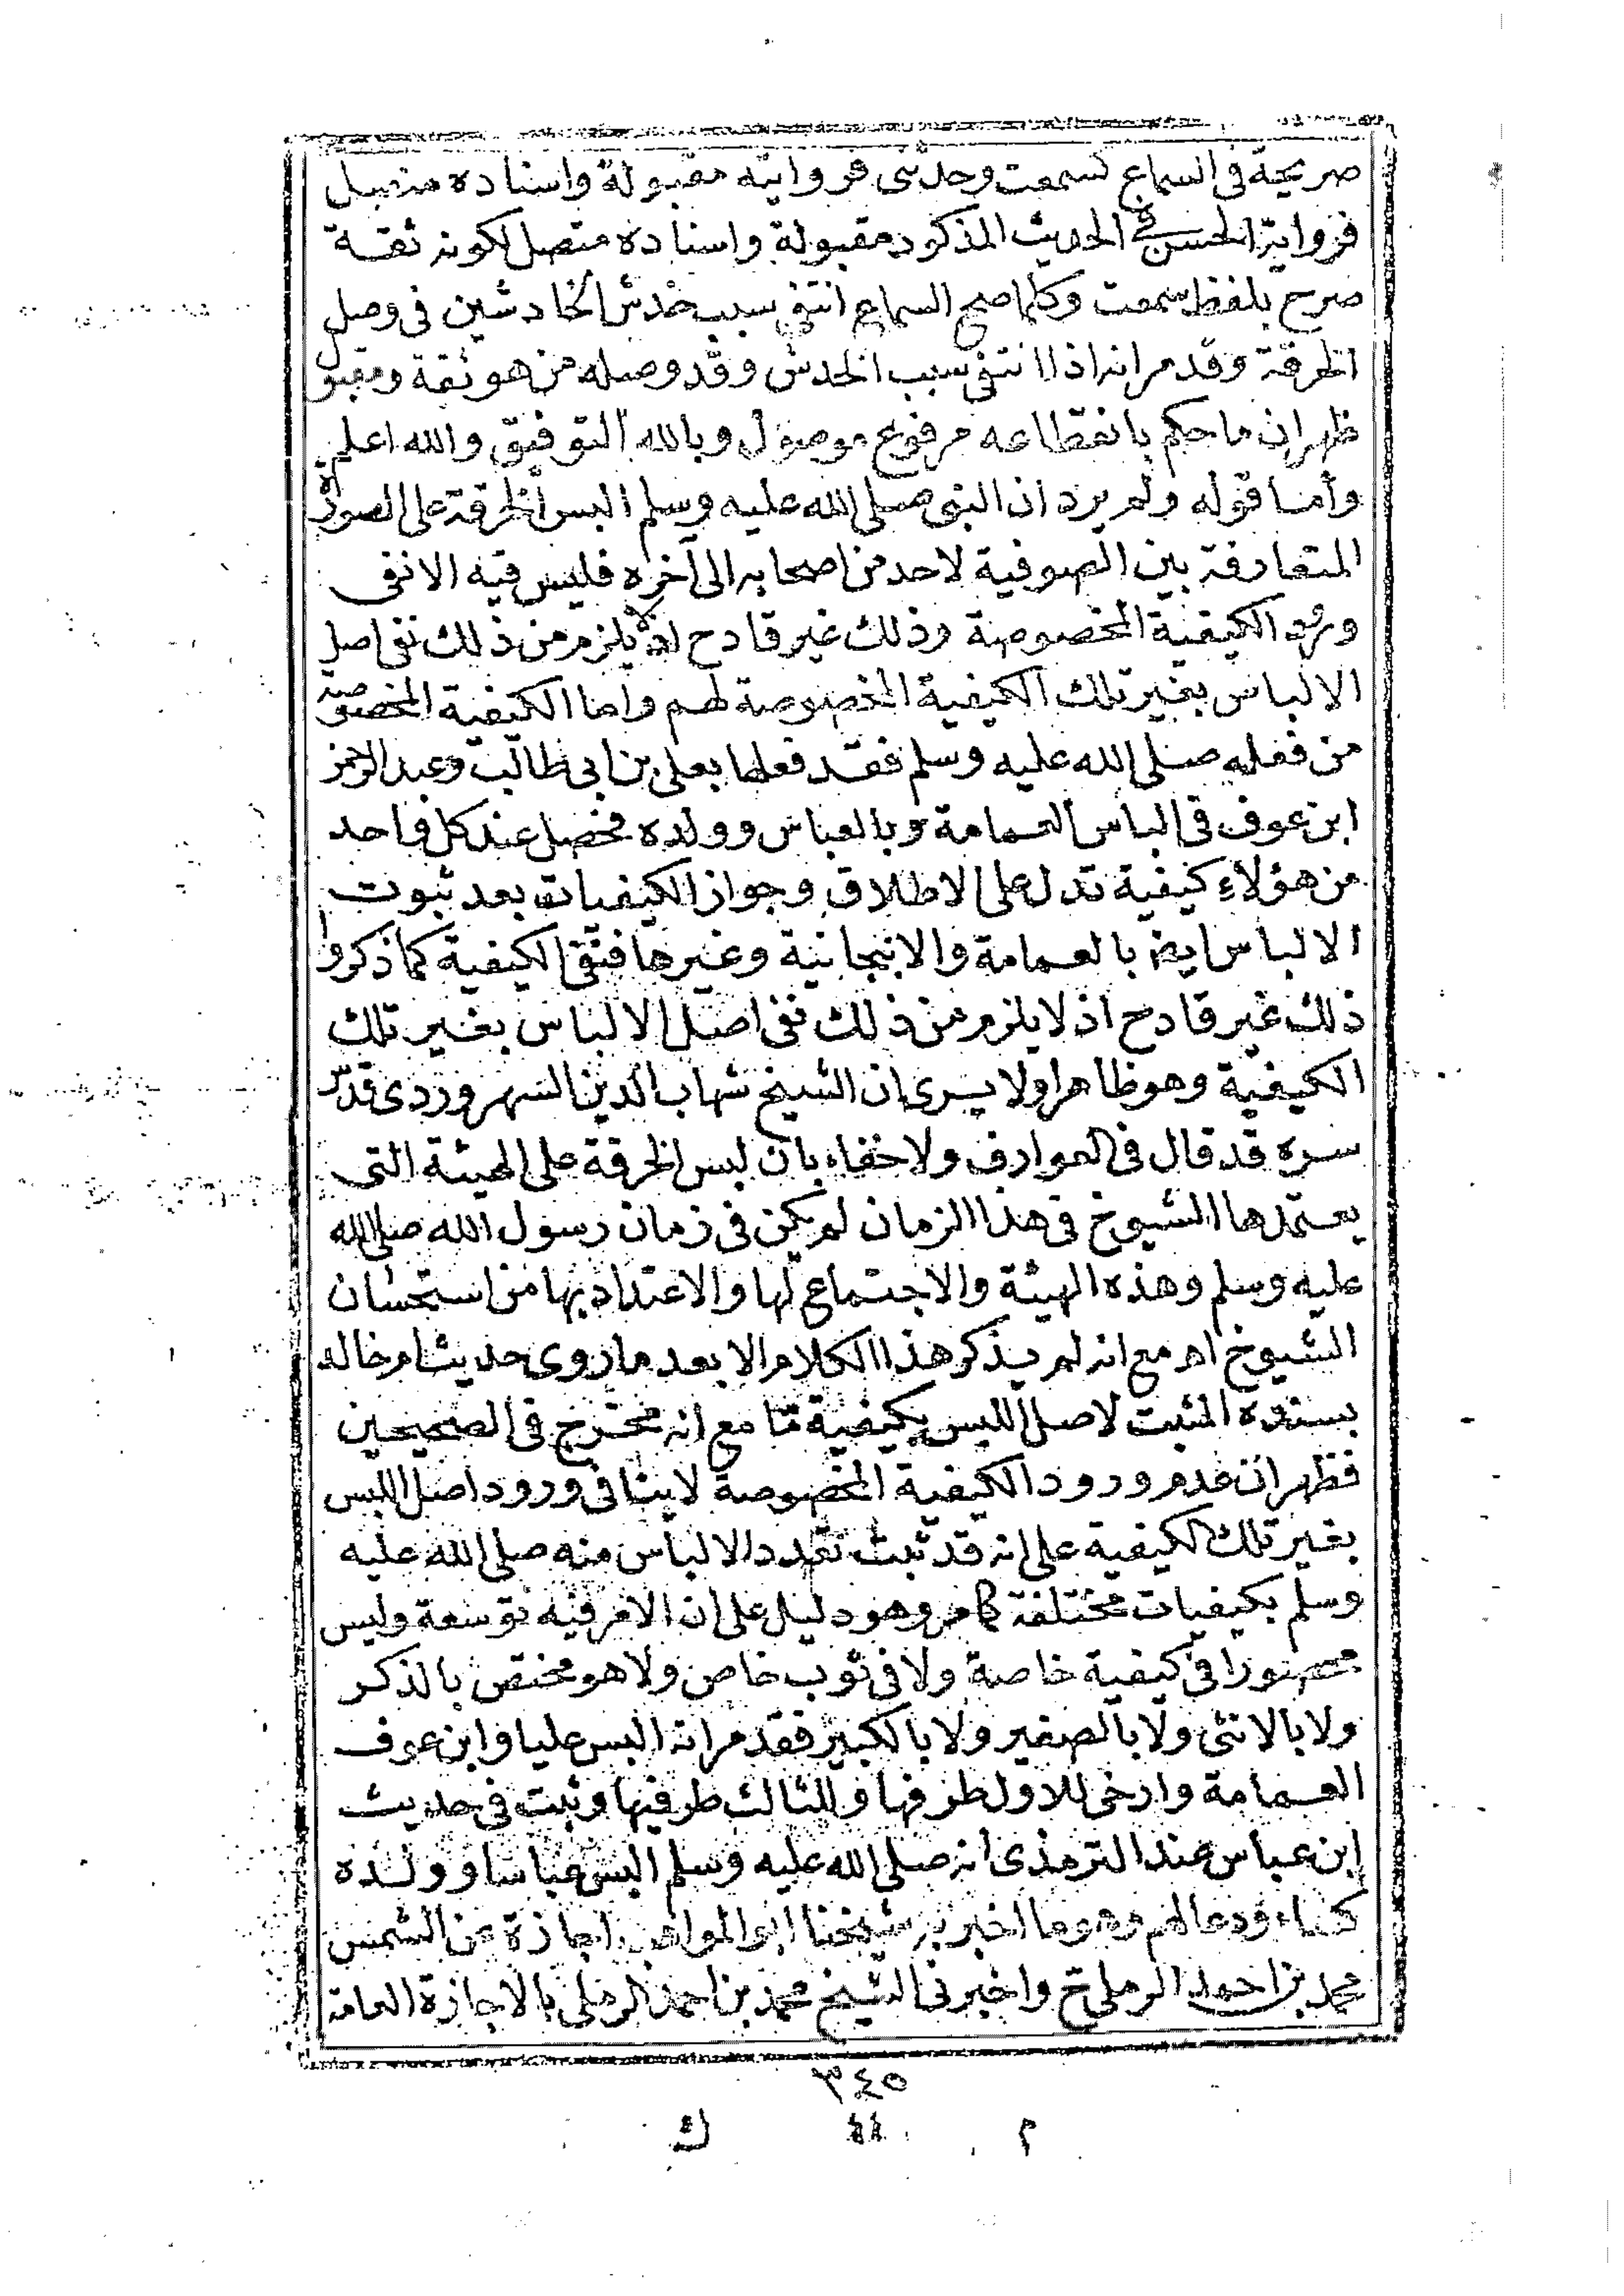 صريحة فى السماع كسمعت وحدثنى فروايته مقبولة واسناده متصل
فرواية الحسن فى الحديث المذكور مقبولة واسناده متصل لكونه ثقة
صرح بلفظ سمعت وكلما صح السماع انتفى سبب خدش الخادشين فى وصل
الخرقة وقد مر انه اذا انتفى سبب الخدش وقد وصله من هو ثقة ومقبو
ظهر ان ما حكم بانقطاعه مرفوع موصول وبالله التوفيق والله اعلم
وأما قوله ولم يرد ان النبى صلى الله عليه وسلم البس الخرقة على الصورة
المتعارفة بين الصوفية لاحد من اصحابه الى آخره فليس فيه الا نفى
ورود الكيفية المخصوصة وذلك غير قادح اذ لا يلزم من ذلك نفى اصل
الالباس بغير تلك الكيفية المخصوصة لهم واما الكيفية المخصوصة
من فعله صلى الله عليه وسلم فقد فعلها بعلى بن ابى طالب وعبد الرحمن
ابن عوف فى الباس العمامة وبالعباس وولده فحصل عند كل واحد
من هؤلاء كيفية تدل على الاطلاق وجواز الكيفيات بعد ثبوت
الالباس ايضا بالعمامة والانبجانية وغيرها فنفى الكيفية كما ذكروا
ذلك غير قادح اذ لا يلزم من ذلك نفى اصل الالباس بغير تلك
الكيفية وهو ظاهر اولا يرى ان الشيخ شهاب الدين السهروردى قدّس
سره قد قال فى العوارف ولا خفاء بان لبس الخرقة على الهيئة التى
يعتمدها الشيوخ فى هذا الزمان لم يكن فى زمان رسول الله صلى الله
عليه وسلم وهذه الهيئة والاجتماع لها والاعتداد بها من استحسان
الشيوخ اهـ مع انه لم يذكر هذا الكلام الا بعد ما روى حديث ام خالد
بسنده المثبت لاصل اللبس بكيفية مّا مع انه مخرج فى الصحيحين
فظهر ان عدم ورود الكيفية المخصوصة لا ينافى ورود اصل اللبس
بغير تلك الكيفية على انه قد ثبت تعدد الالباس منه صلى الله عليه
وسلم بكيفيات مختلفة كما مر وهو دليل على ان الامر فيه توسعة وليس
محصورا فى كيفية خاصة ولا فى ثوب خاص ولا هو مختص بالذكر
ولا بالانثى ولا بالصغير ولا بالكبير فقد مر انه البس عليا وابن عوف
العمامة وارخى للاول طرفها وللثالث طرفيها وثبت فى حديث
ابن عباس عند الترمذى انه صلى الله عليه وسلم البس عباسا وولده
كساء ودعا لهم وهو ما اخبر به شيخنا ابو المواهب اجازة عن الشمس
محمد بن احمد الرملى ح واخبرنى الشيخ محمد بن احمد الرملى بالاجازة العامة
٣٤٥
م ٤٤ ك